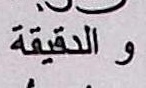 و الدقيقة